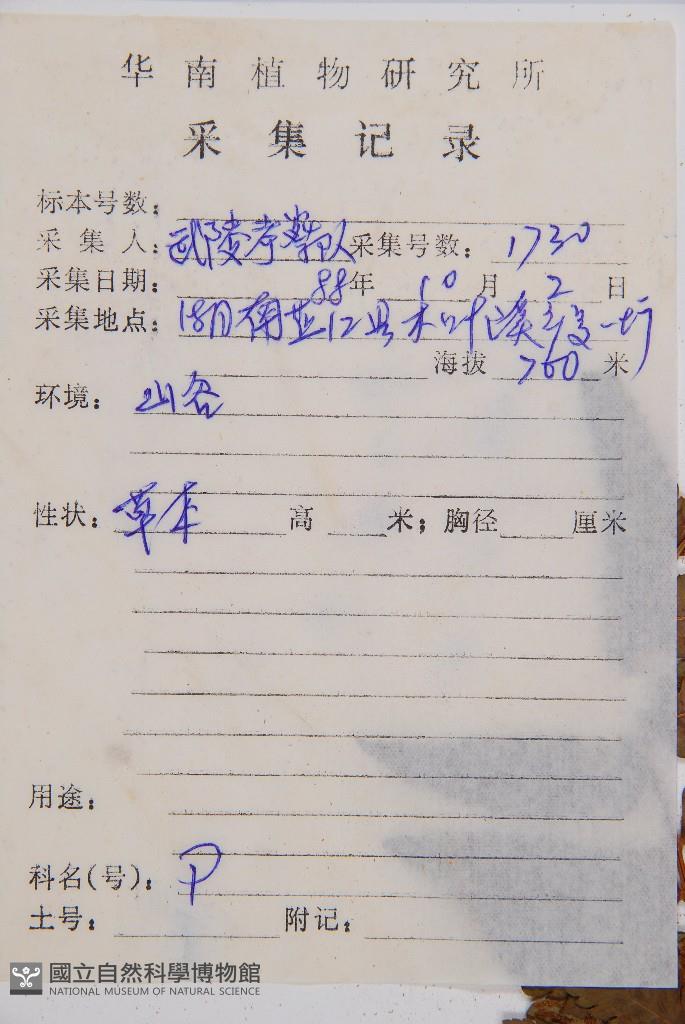 华南植物研究所
采集记录
标本号数:
采集人: 武陵考察队 采集号数: 1730
采集日期: 88年 10月 2日
采集地点: 湖南芷江县木叶溪
海拔 760 米
环境: 山谷
性状: 草本 高 米; 胸径 厘米
用途:
科名(号): P
土号: 附记:
國立自然科學博物館
NATIONAL MUSEUM OF NATURAL SCIENCE